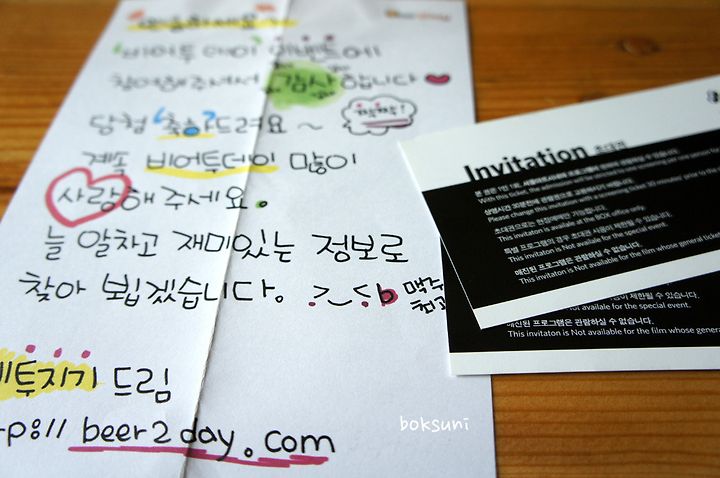 안녕하세요~
비어투데이 이벤트에
참여해주셔서 감사합니다
당첨 축하드려요~
짝짝!
계속 비어투데이 많이
사랑해주세요.
늘 알차고 재미있는 정보로
찾아 뵙겠습니다.
맥주
최고
투지기 드림
p:// beer2day.com
boksuni
Invitation 초대권
With this ticket, the admission will be
Please change this invitation with a screening ticket 30 minutes prior to the
초대권으로는 현장예매만 가능합니다.
This invitation is available at the BOX office only.
특별 프로그램의 경우 초대권 사용이 제한될 수 있습니다.
This invitation is Not available for the special event.
매진된 프로그램은 관람하실 수 없습니다.
This invitation is Not available for the film whose general ticket
제한될 수 있습니다.
available for the special event.
매진된 프로그램은 관람하실 수 없습니다.
This invitation is Not available for the film whose general